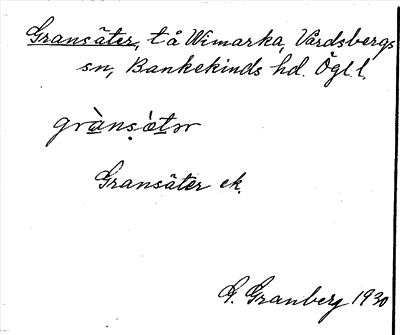 Gransäter, tå Wimarka, Vårdsbergs
sn, Bankekinds hd. Ögl. l.
grànsæ̀tər
Gransäter ek.
G. Granberg 1930